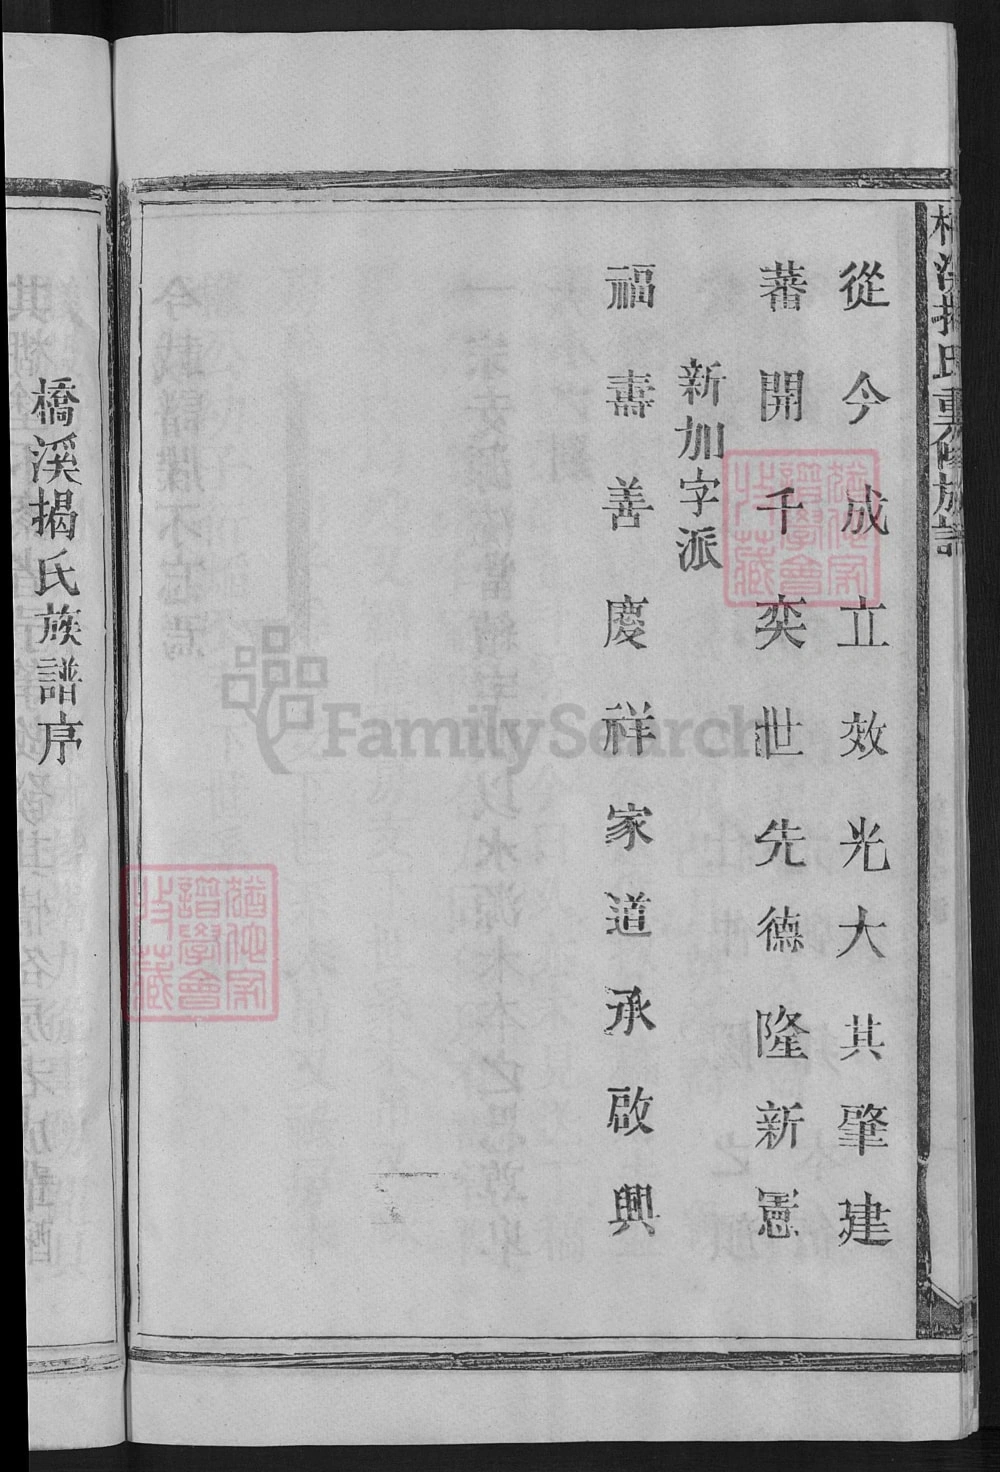 從今成立效光大其肇建
蕃開千奕世先德隆新憲
新加字派
福壽善慶祥家道承啟興
橋溪揭氏族譜序
橋溪揭氏重修族譜
FamilySearch